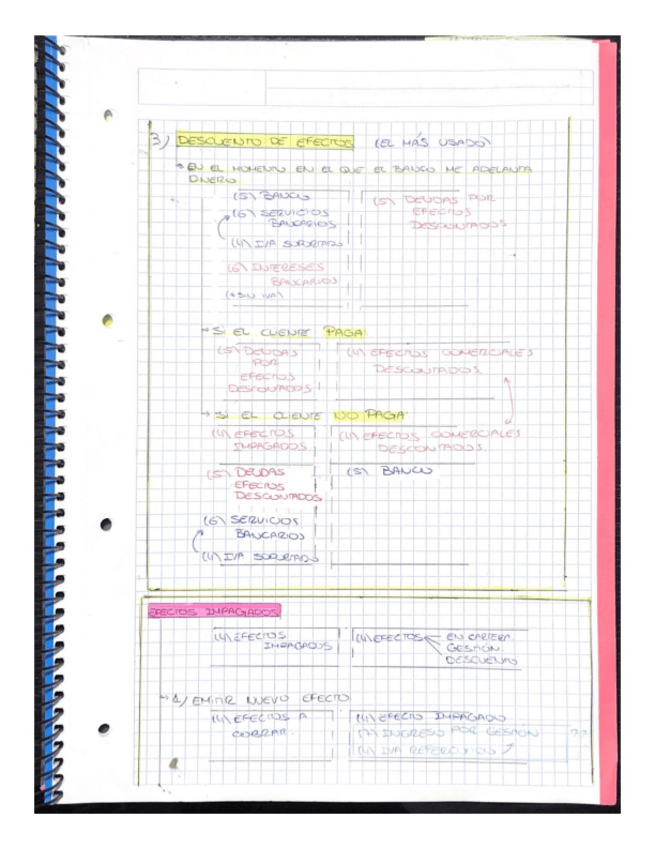 3) DESCUENTO DE EFECTOS (EL MÁS USADO)
→ EN EL MOMENTO EN EL QUE EL BANCO ME ADELANTA
DINERO
(5) BANCO
(6) SERVICIOS
BANCARIOS
(4) IVA SOPORTADO
(6) INTERESES
BANCARIOS
(*SIN IVA)
(5) DEUDAS POR
EFECTOS
DESCONTADOS
→ SI EL CLIENTE PAGA
(5) DEUDAS
POR
EFECTOS
DESCONTADOS
(4) EFECTOS COMERCIALES
DESCONTADOS
→ SI EL CLIENTE NO PAGA
(4) EFECTOS
IMPAGADOS
(4) EFECTOS COMERCIALES
DESCONTADOS
(5) DEUDAS
EFECTOS
DESCONTADOS
(5) BANCO
(6) SERVICIOS
BANCARIOS
(4) IVA SOPORTADO
EFECTOS IMPAGADOS
(4) EFECTOS
IMPAGADOS
(4) EFECTOS EN CARTERA
GESTIÓN
DESCUENTO
→ 1/ EMITIR NUEVO EFECTO
(4) EFECTOS A
COBRAR
(4) EFECTO IMPAGADO
(7) INGRESO POR GESTIÓN ??
(4) IVA REPERCUTIDO